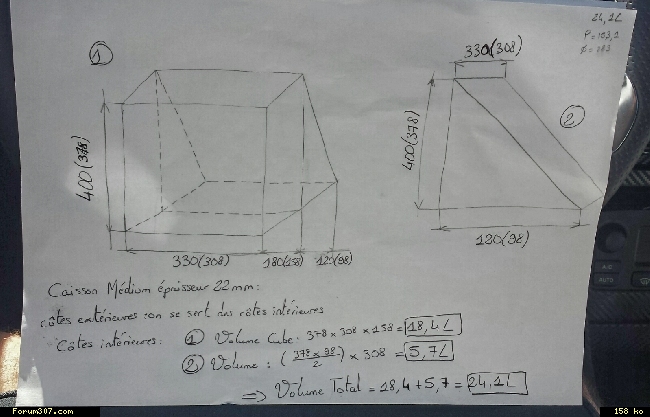 24,1L
P=103,1
①
330(308)
②
400(378)
400(378)
330(308) 180(158) 120(98)
120(98)
Caisson Médium épaisseur 22mm:
côtes extérieures: on se sert des côtes intérieures
Côtes intérieures: ① Volume Cube: 378 x 308 x 158 = 18,4L
② Volume: (378 x 98 / 2) x 308 = 5,7L
=> Volume Total = 18,4 + 5,7 = 24,1L
Forum307.com
158 ko